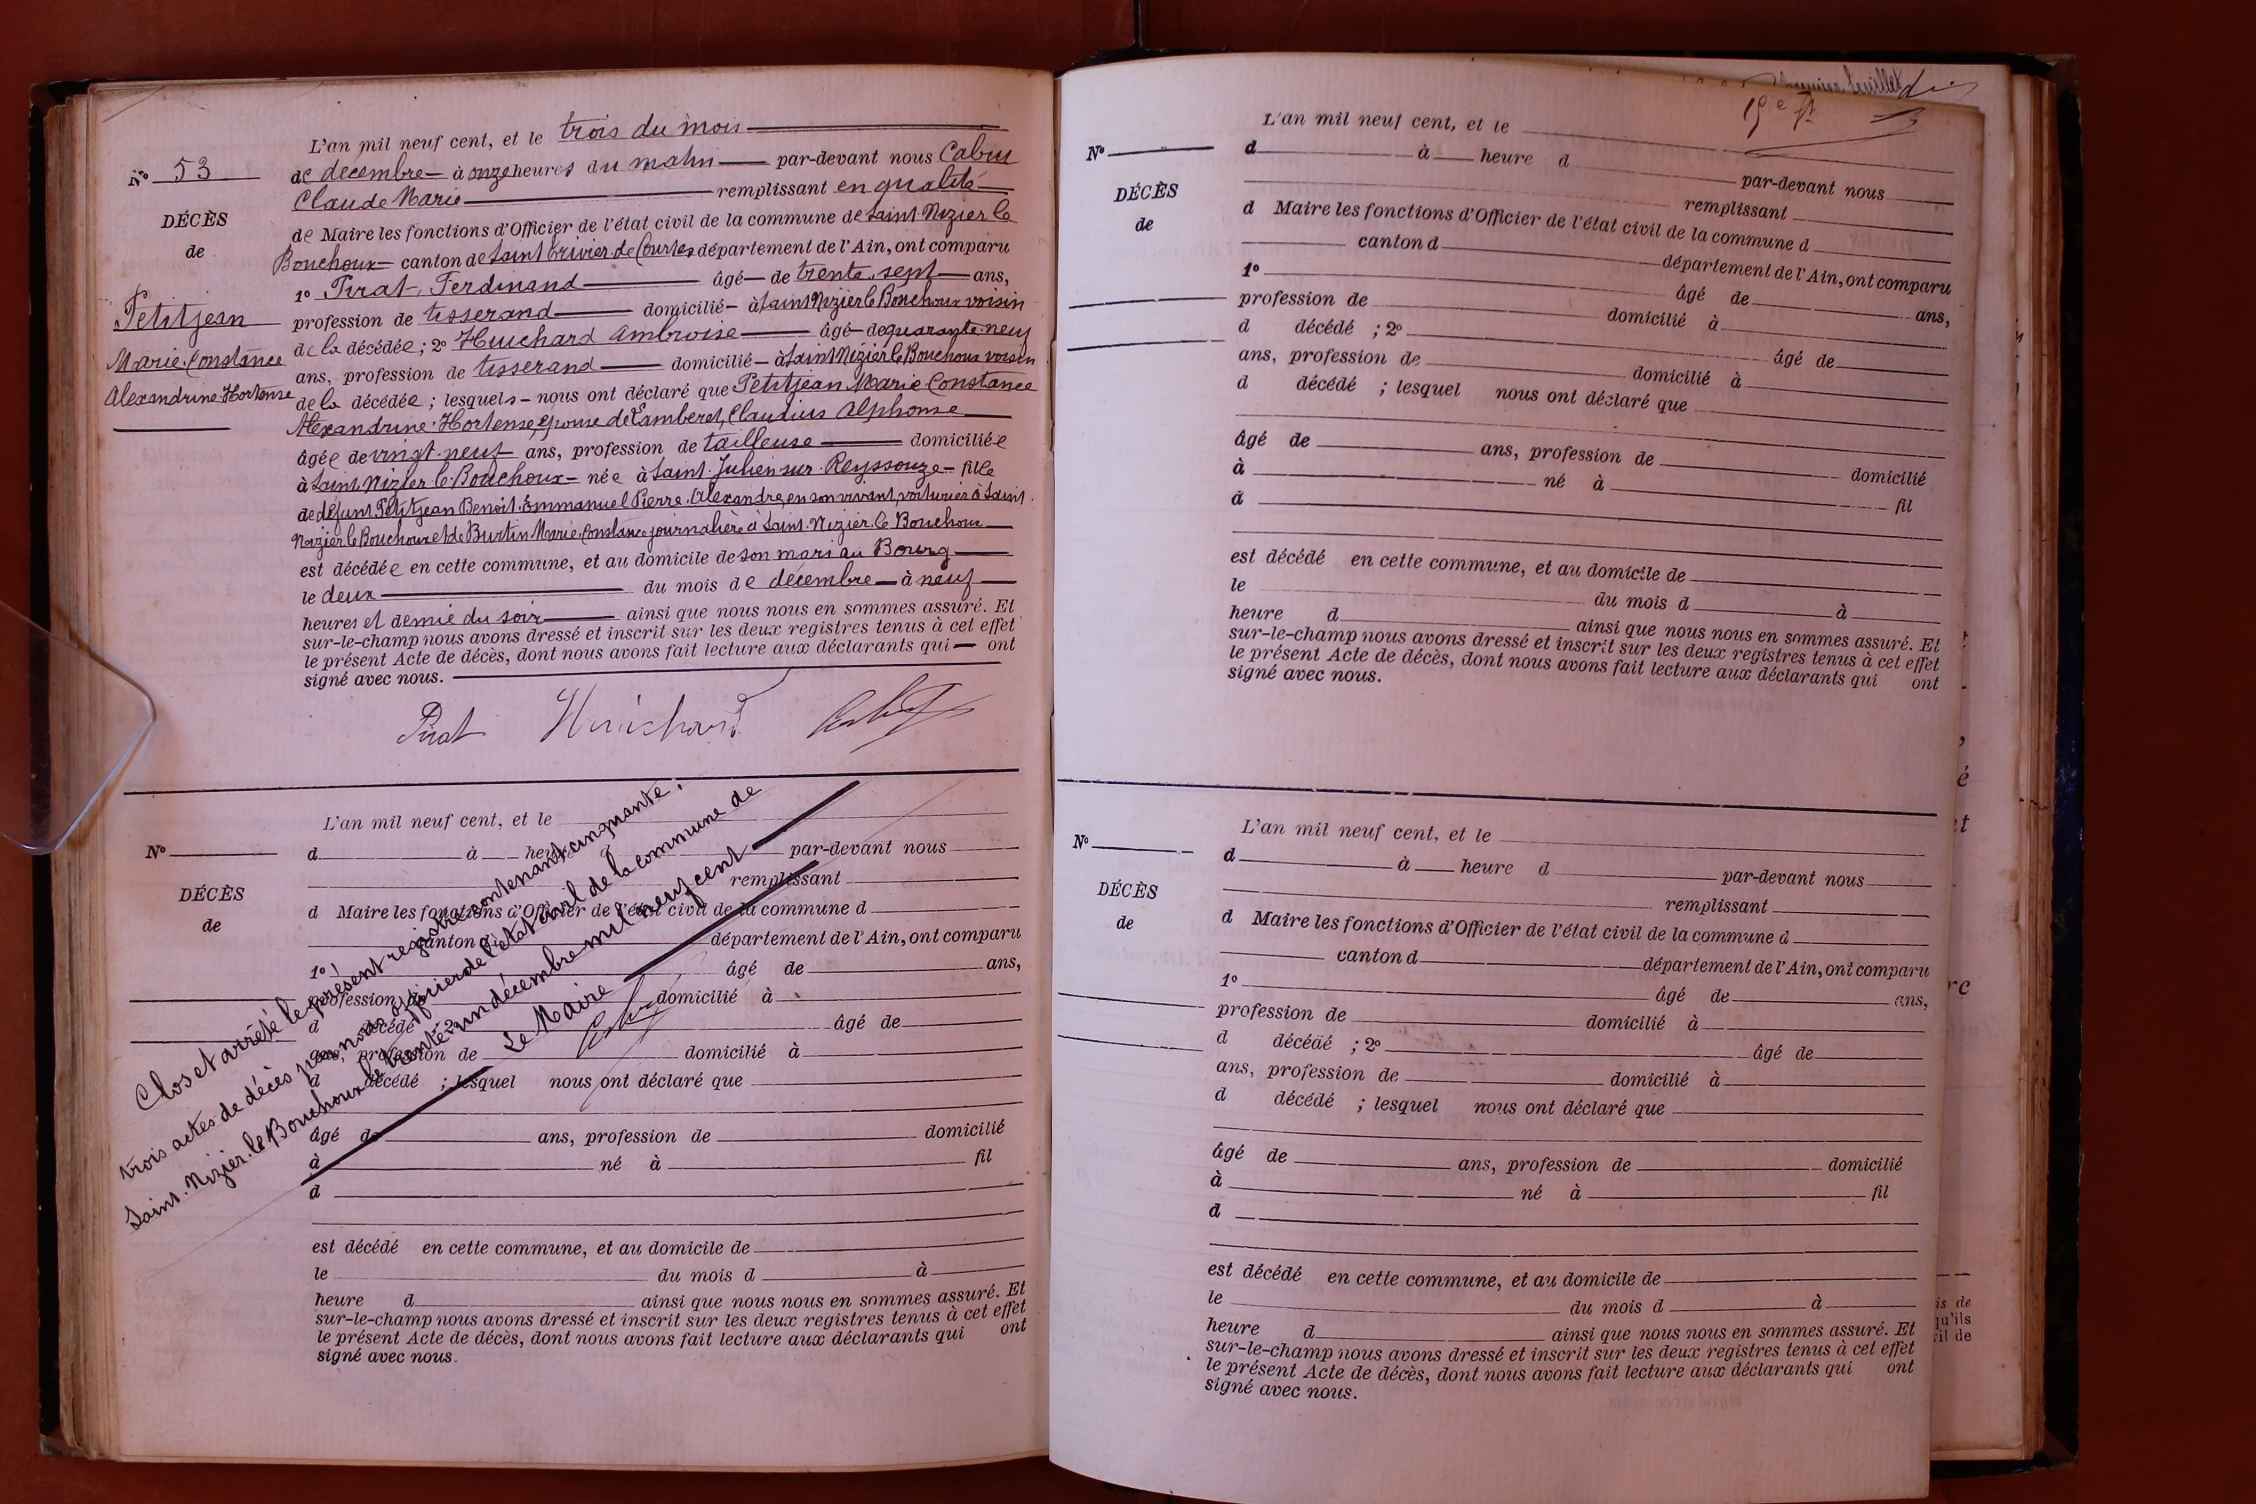 L'an mil neuf cent, et le trois du mois
N° 53
de décembre à onze heures du matin par-devant nous Cabut
Claude Marie remplissant en qualité
DÉCÈS
de Maire les fonctions d'Officier de l'état civil de la commune de Saint-Nizier le
de
Bouchoux canton de Saint Trivier de Courtes département de l'Ain, ont comparu
1° Pirat, Ferdinand âgé de trente sept ans,
Petitjean
profession de tisserand domicilié à Saint Nizier le Bouchoux voisin
de la décédée ; 2° Huichard Ambroise âgé de quarante-neuf
Marie Constance
ans, profession de tisserand domicilié à Saint Nizier le Bouchoux voisin
Alexandrine Hortense
de la décédée ; lesquels nous ont déclaré que Petitjean Marie Constance
Alexandrine Hortense, épouse de Lamberet, Claudius Alphonse
âgée de vingt-neuf ans, profession de tailleuse domiciliée
à Saint Nizier le Bouchoux née à Saint-Julien sur Reyssouze fille
de défunt Petitjean Benoît Emmanuel Pierre Alexandre, en son vivant voiturier à Saint
Nizier le Bouchoux et de Burtin Marie Constance journalière à Saint-Nizier le Bouchoux
est décédée en cette commune, et au domicile de son mari au Bourg
le deux du mois de décembre à neuf
heures et demie du soir ainsi que nous nous en sommes assuré. Et
sur-le-champ nous avons dressé et inscrit sur les deux registres tenus à cet effet
le présent Acte de décès, dont nous avons fait lecture aux déclarants qui ont
signé avec nous.
Pirat Huichard
L'an mil neuf cent, et le
N° d à heure d par-devant nous
remplissant
DÉCÈS
d Maire les fonctions d'Officier de l'état civil de la commune d
de
canton d département de l'Ain, ont comparu
1° âgé de ans,
profession de domicilié à
d décédé ; 2° âgé de
ans, profession de domicilié à
d décédé ; lesquel nous ont déclaré que
âgé de ans, profession de domicilié
à né à fil
d
est décédé en cette commune, et au domicile de
le du mois d à
heure d ainsi que nous nous en sommes assuré. Et
sur-le-champ nous avons dressé et inscrit sur les deux registres tenus à cet effet
le présent Acte de décès, dont nous avons fait lecture aux déclarants qui ont
signé avec nous.
Clos et arrêté le présent registre contenant cinquante
trois actes de décès par nous officier de l'état civil de la commune de
Saint-Nizier-le Bouchoux le trente-un décembre mil neuf cent
Le Maire
L'an mil neuf cent, et le
N° d à heure d par-devant nous
DÉCÈS
remplissant
de
d Maire les fonctions d'Officier de l'état civil de la commune d
canton d département de l'Ain, ont comparu
1° âgé de ans,
profession de domicilié à
d décédé ; 2° âgé de
ans, profession de domicilié à
d décédé ; lesquel nous ont déclaré que
âgé de ans, profession de domicilié
à né à fil
d
est décédé en cette commune, et au domicile de
le du mois d à
heure d ainsi que nous nous en sommes assuré. Et
sur-le-champ nous avons dressé et inscrit sur les deux registres tenus à cet effet
le présent Acte de décès, dont nous avons fait lecture aux déclarants qui ont
signé avec nous.
L'an mil neuf cent, et le
N° d à heure d par-devant nous
remplissant
DÉCÈS
d Maire les fonctions d'Officier de l'état civil de la commune d
de
canton d département de l'Ain, ont comparu
1° âgé de ans,
profession de domicilié à
d décédé ; 2° âgé de
ans, profession de domicilié à
d décédé ; lesquel nous ont déclaré que
âgé de ans, profession de domicilié
à né à fil
d
est décédé en cette commune, et au domicile de
le du mois d à
heure d ainsi que nous nous en sommes assuré. Et
sur-le-champ nous avons dressé et inscrit sur les deux registres tenus à cet effet
le présent Acte de décès, dont nous avons fait lecture aux déclarants qui ont
signé avec nous.